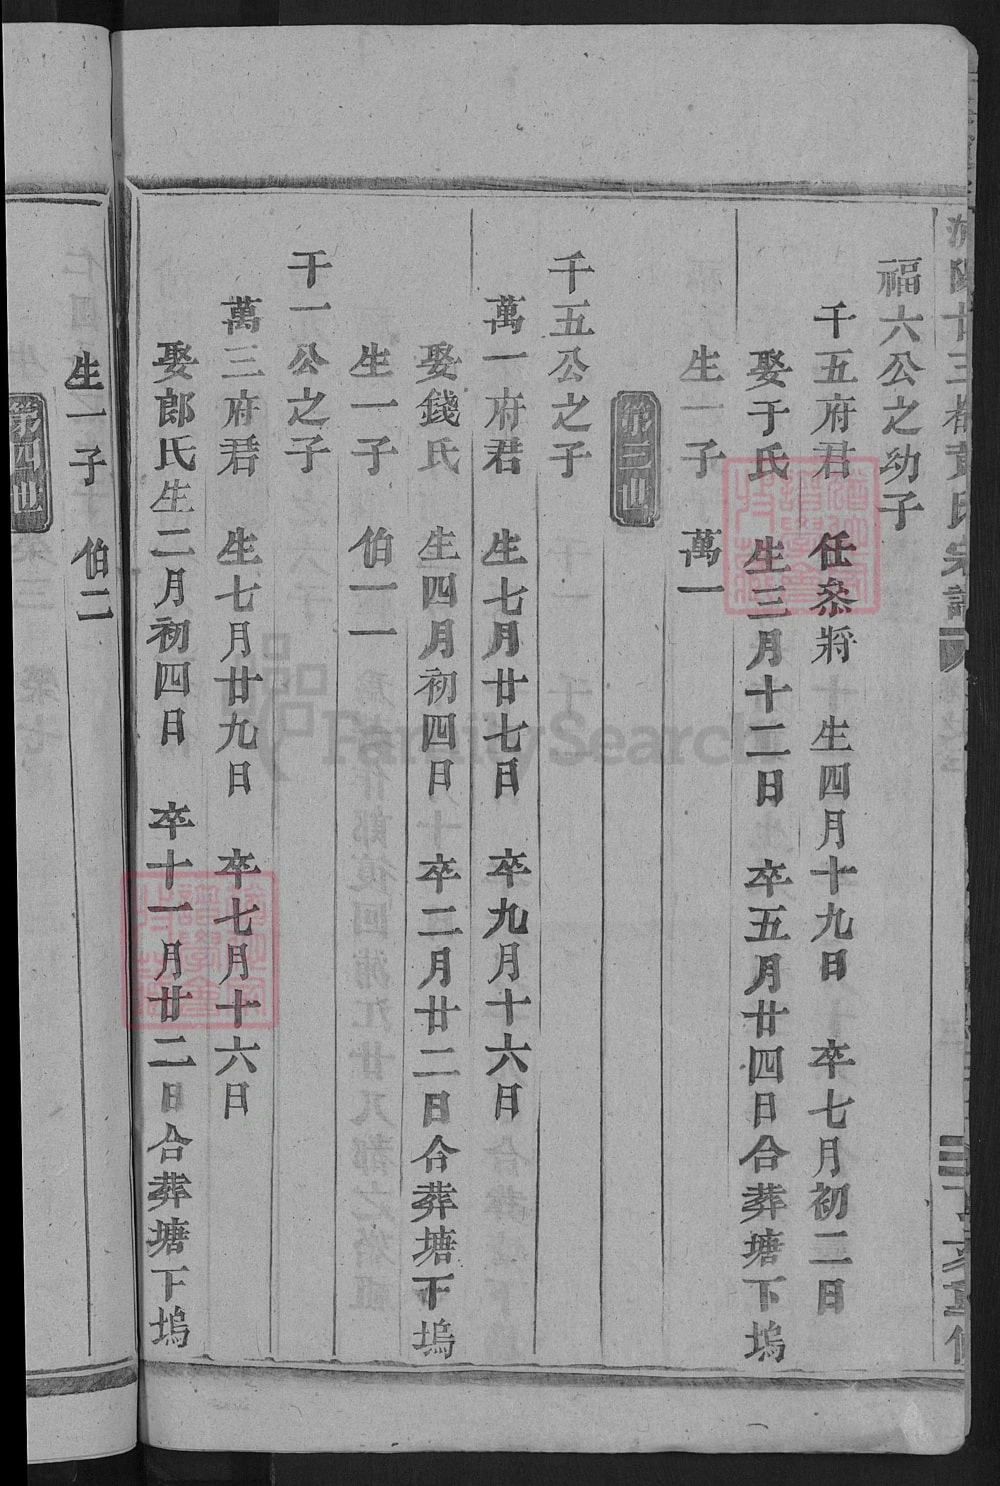 福六公之幼子
千五府君　任叅將　生四月十九日　卒七月初二日
娶于氏　生三月十二日　卒五月廿四日合葬塘下塢
生一子　萬一
第三世
千五公之子
萬一府君　生七月廿七日　卒九月十六日
娶錢氏　生四月初四日　卒二月廿二日合葬塘下塢
生一子　伯一
千一公之子
萬三府君　生七月廿九日　卒七月十六日
娶郎氏生二月初四日　卒十一月廿二日合葬塘下塢
生一子　伯二
第四世
FamilySearch